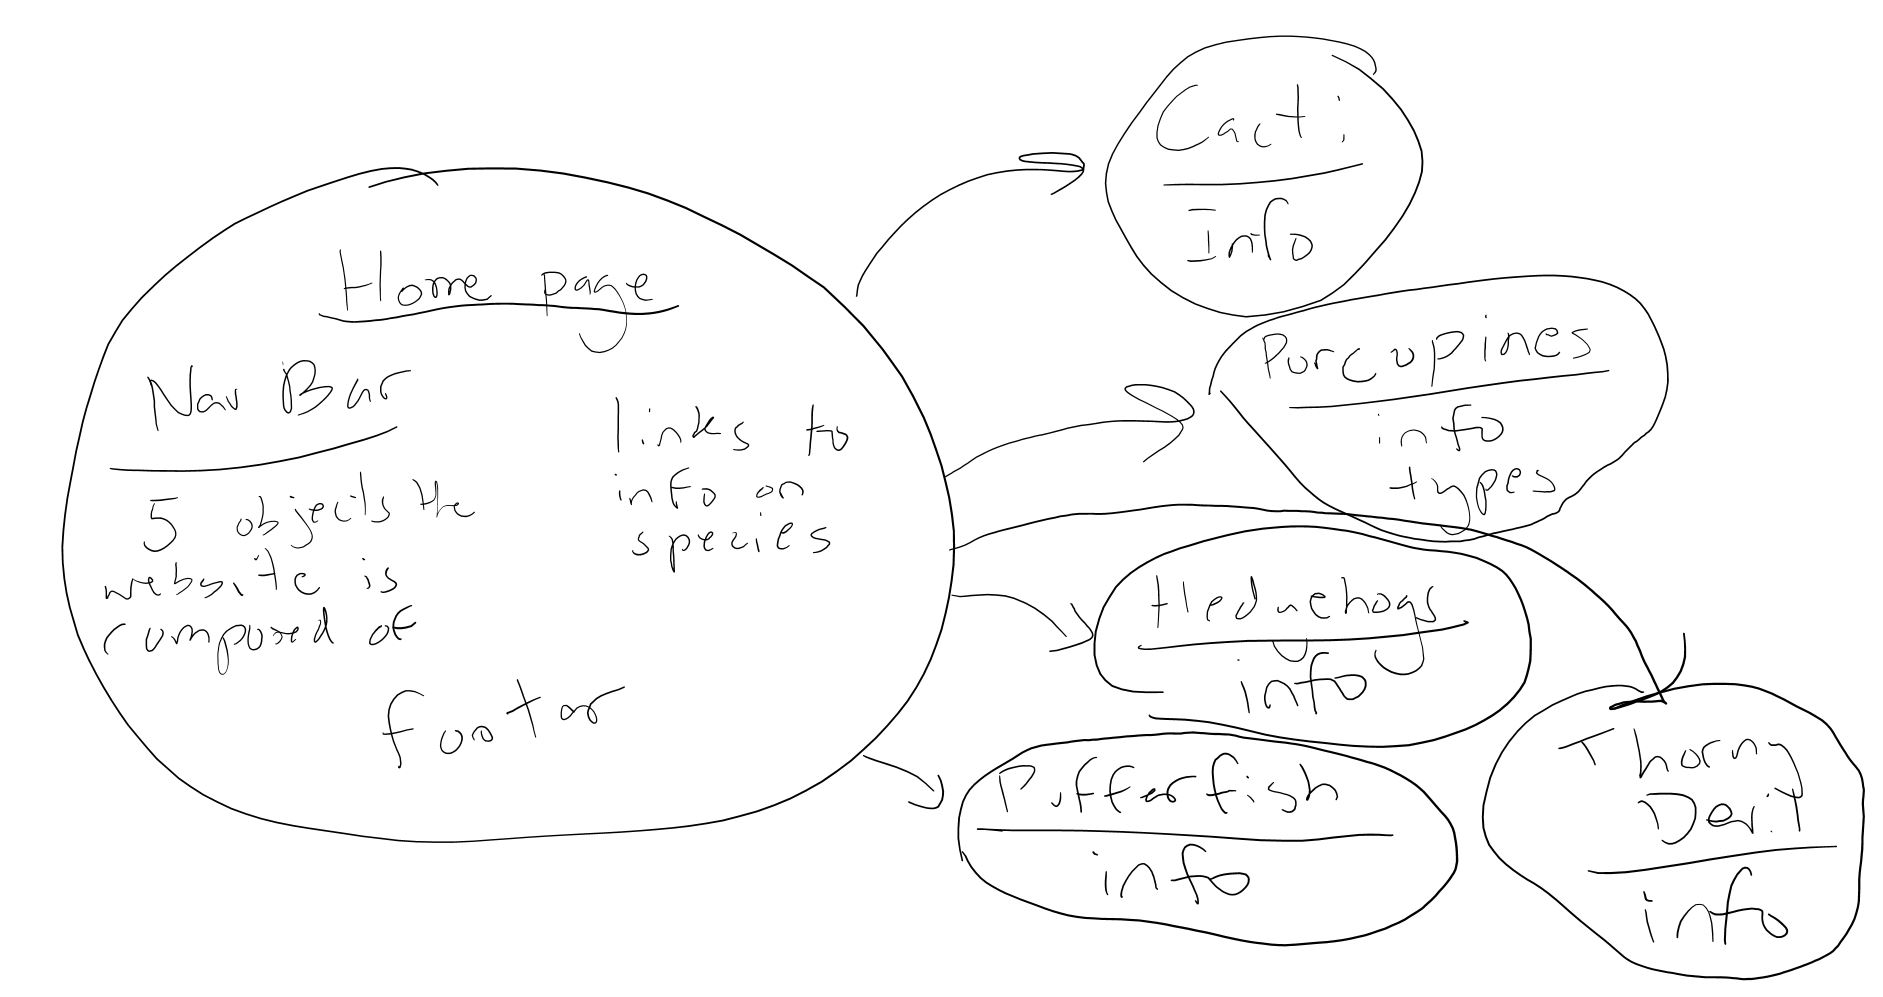 Home page
Nav Bar
5 objects the
website is
composed of
links to
info on
species
footer
Cacti
Info
Porcupines
info
types
Hedgehogs
info
Pufferfish
info
Thorny
Devil
info